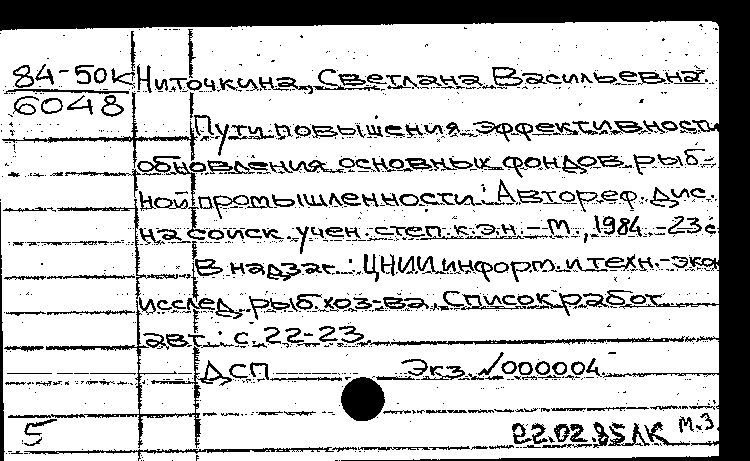 84-50к Ниточкина, Светлана Васильевна.
6048
Пути повышения эффективности
обновления основных фондов рыб-
ной промышленности: Автореф. дис.
на соиск. учен. степ. к.э.н. - М., 1984. - 23 с
В надзаг.: ЦНИИ информ. и техн.-экон
исслед. рыб. хоз-ва. Список работ
авт.: с. 22-23.
ДСП Экз. №000004
5 22.02.85 ЛК М.З.